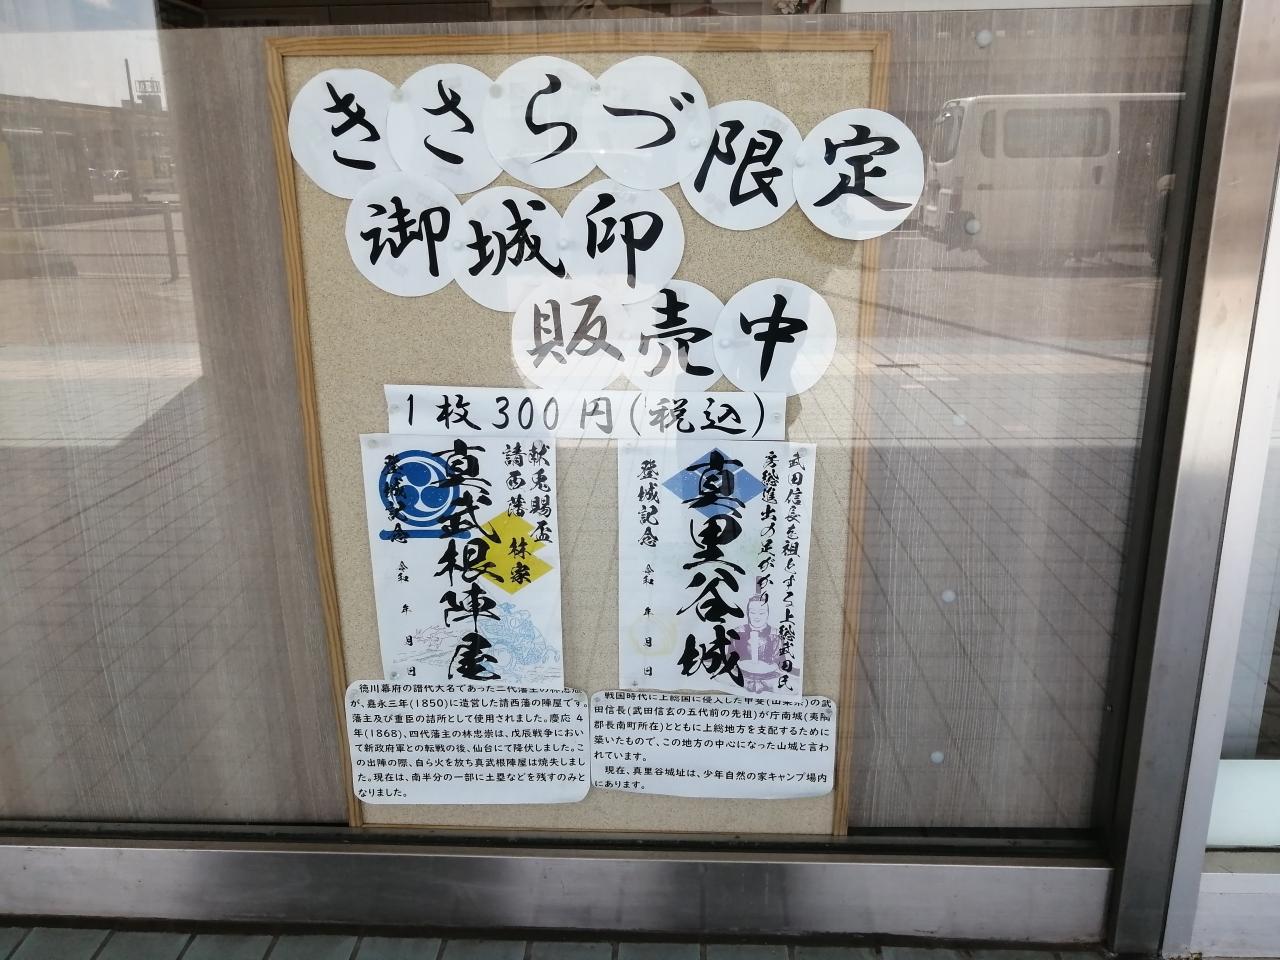 きさらづ限定
御城印
販売中
1枚300円(税込)
献兎賜盃
請西藩 林家
真武根陣屋
登城記念
令和 年 月 日
武田信長を祖とする上総武田氏
房総進出の足がかり
真里谷城
登城記念
令和 年 月 日
徳川幕府の譜代大名であった二代藩主の林忠旭
が、嘉永三年(1850)に造営した請西藩の陣屋です。
藩主及び重臣の詰所として使用されました。慶応4
年(1868)、四代藩主の林忠崇は、戊辰戦争におい
て新政府軍との転戦の後、仙台にて降伏しました。こ
の出陣の際、自ら火を放ち真武根陣屋は焼失しまし
た。現在は、南半分の一部に土塁などを残すのみと
なりました。
戦国時代に上総国に侵入した甲斐(山梨県)の武
田信長(武田信玄の五代前の先祖)が庁南城(夷隅
郡長南町所在)とともに上総地方を支配するために
築いたもので、この地方の中心になった山城と言わ
れています。
現在、真里谷城址は、少年自然の家キャンプ場内
にあります。